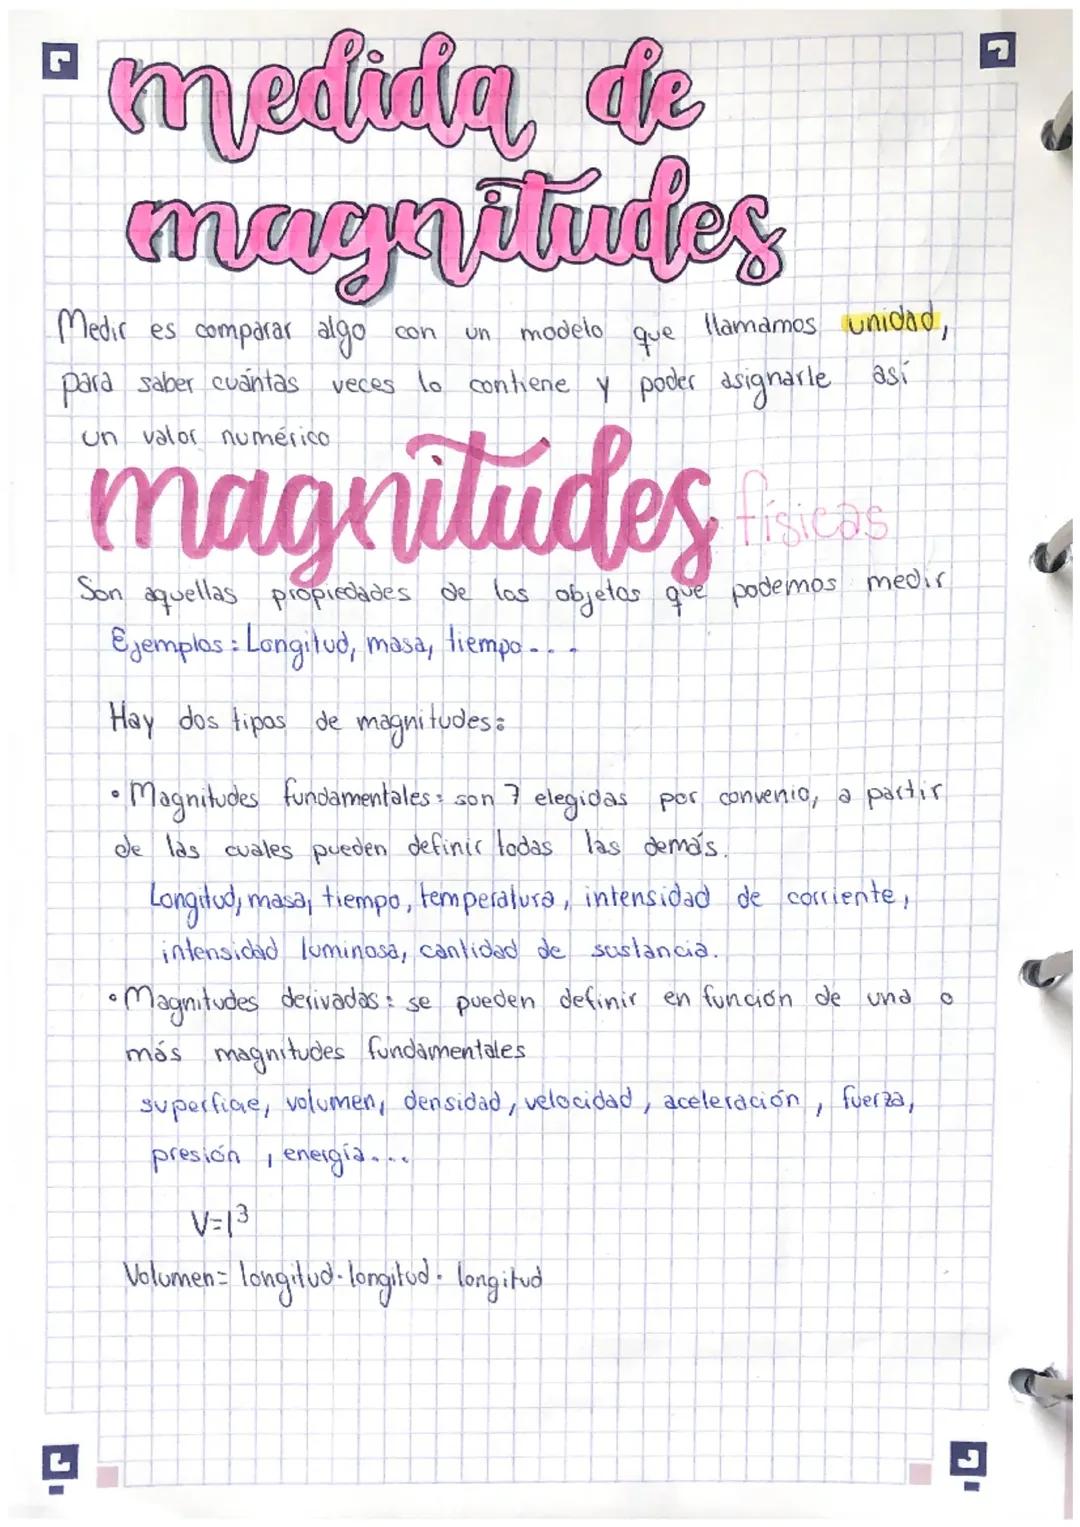 medida de
magnitudes
Medir es comparar algo con un modelo que llamamos unidad,
para saber cuántas veces lo contiene y poder asignarle así
un valor numérico
magnitudes físicas
Son aquellas propiedades de los objetos que podemos medir
Ejemplos: Longitud, masa, tiempo....
Hay dos tipos de magnitudes:
• Magnitudes fundamentales: son 7 elegidas por convenio, a partir
de las cuales pueden definir todas las demás.
Longitud, masa, tiempo, temperatura, intensidad de corriente,
intensidad luminosa, cantidad de sustancia.
• Magnitudes derivadas: se pueden definir en función de una o
más magnitudes fundamentales
superficie, volumen, densidad, velocidad, aceleración, fuerza,
presión, energía....
V=l³
Volumen= longitud·longitud·longitud